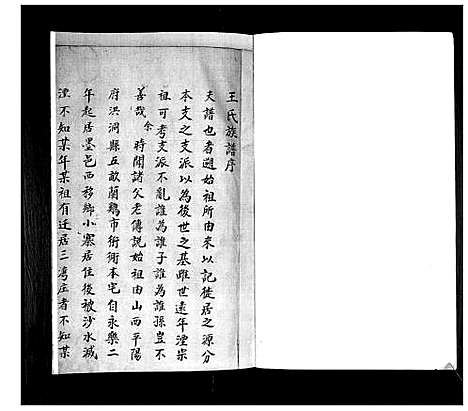 王氏族譜序
夫譜也者遡始祖所由來以記徙居之源分
本支之支派以為後世之基雖世遠年湮宗
祖可考支派不亂誰為誰子誰為誰孫豈不
善哉 余時聞諸父老傳説始祖由山西平陽
府洪洞縣五畝蘭鷄市衚衕本宅自永樂二
年起居墨邑西移鄉小寨居住後被沙水滅
湮不知某年某祖有迁居三灣庄者不知某